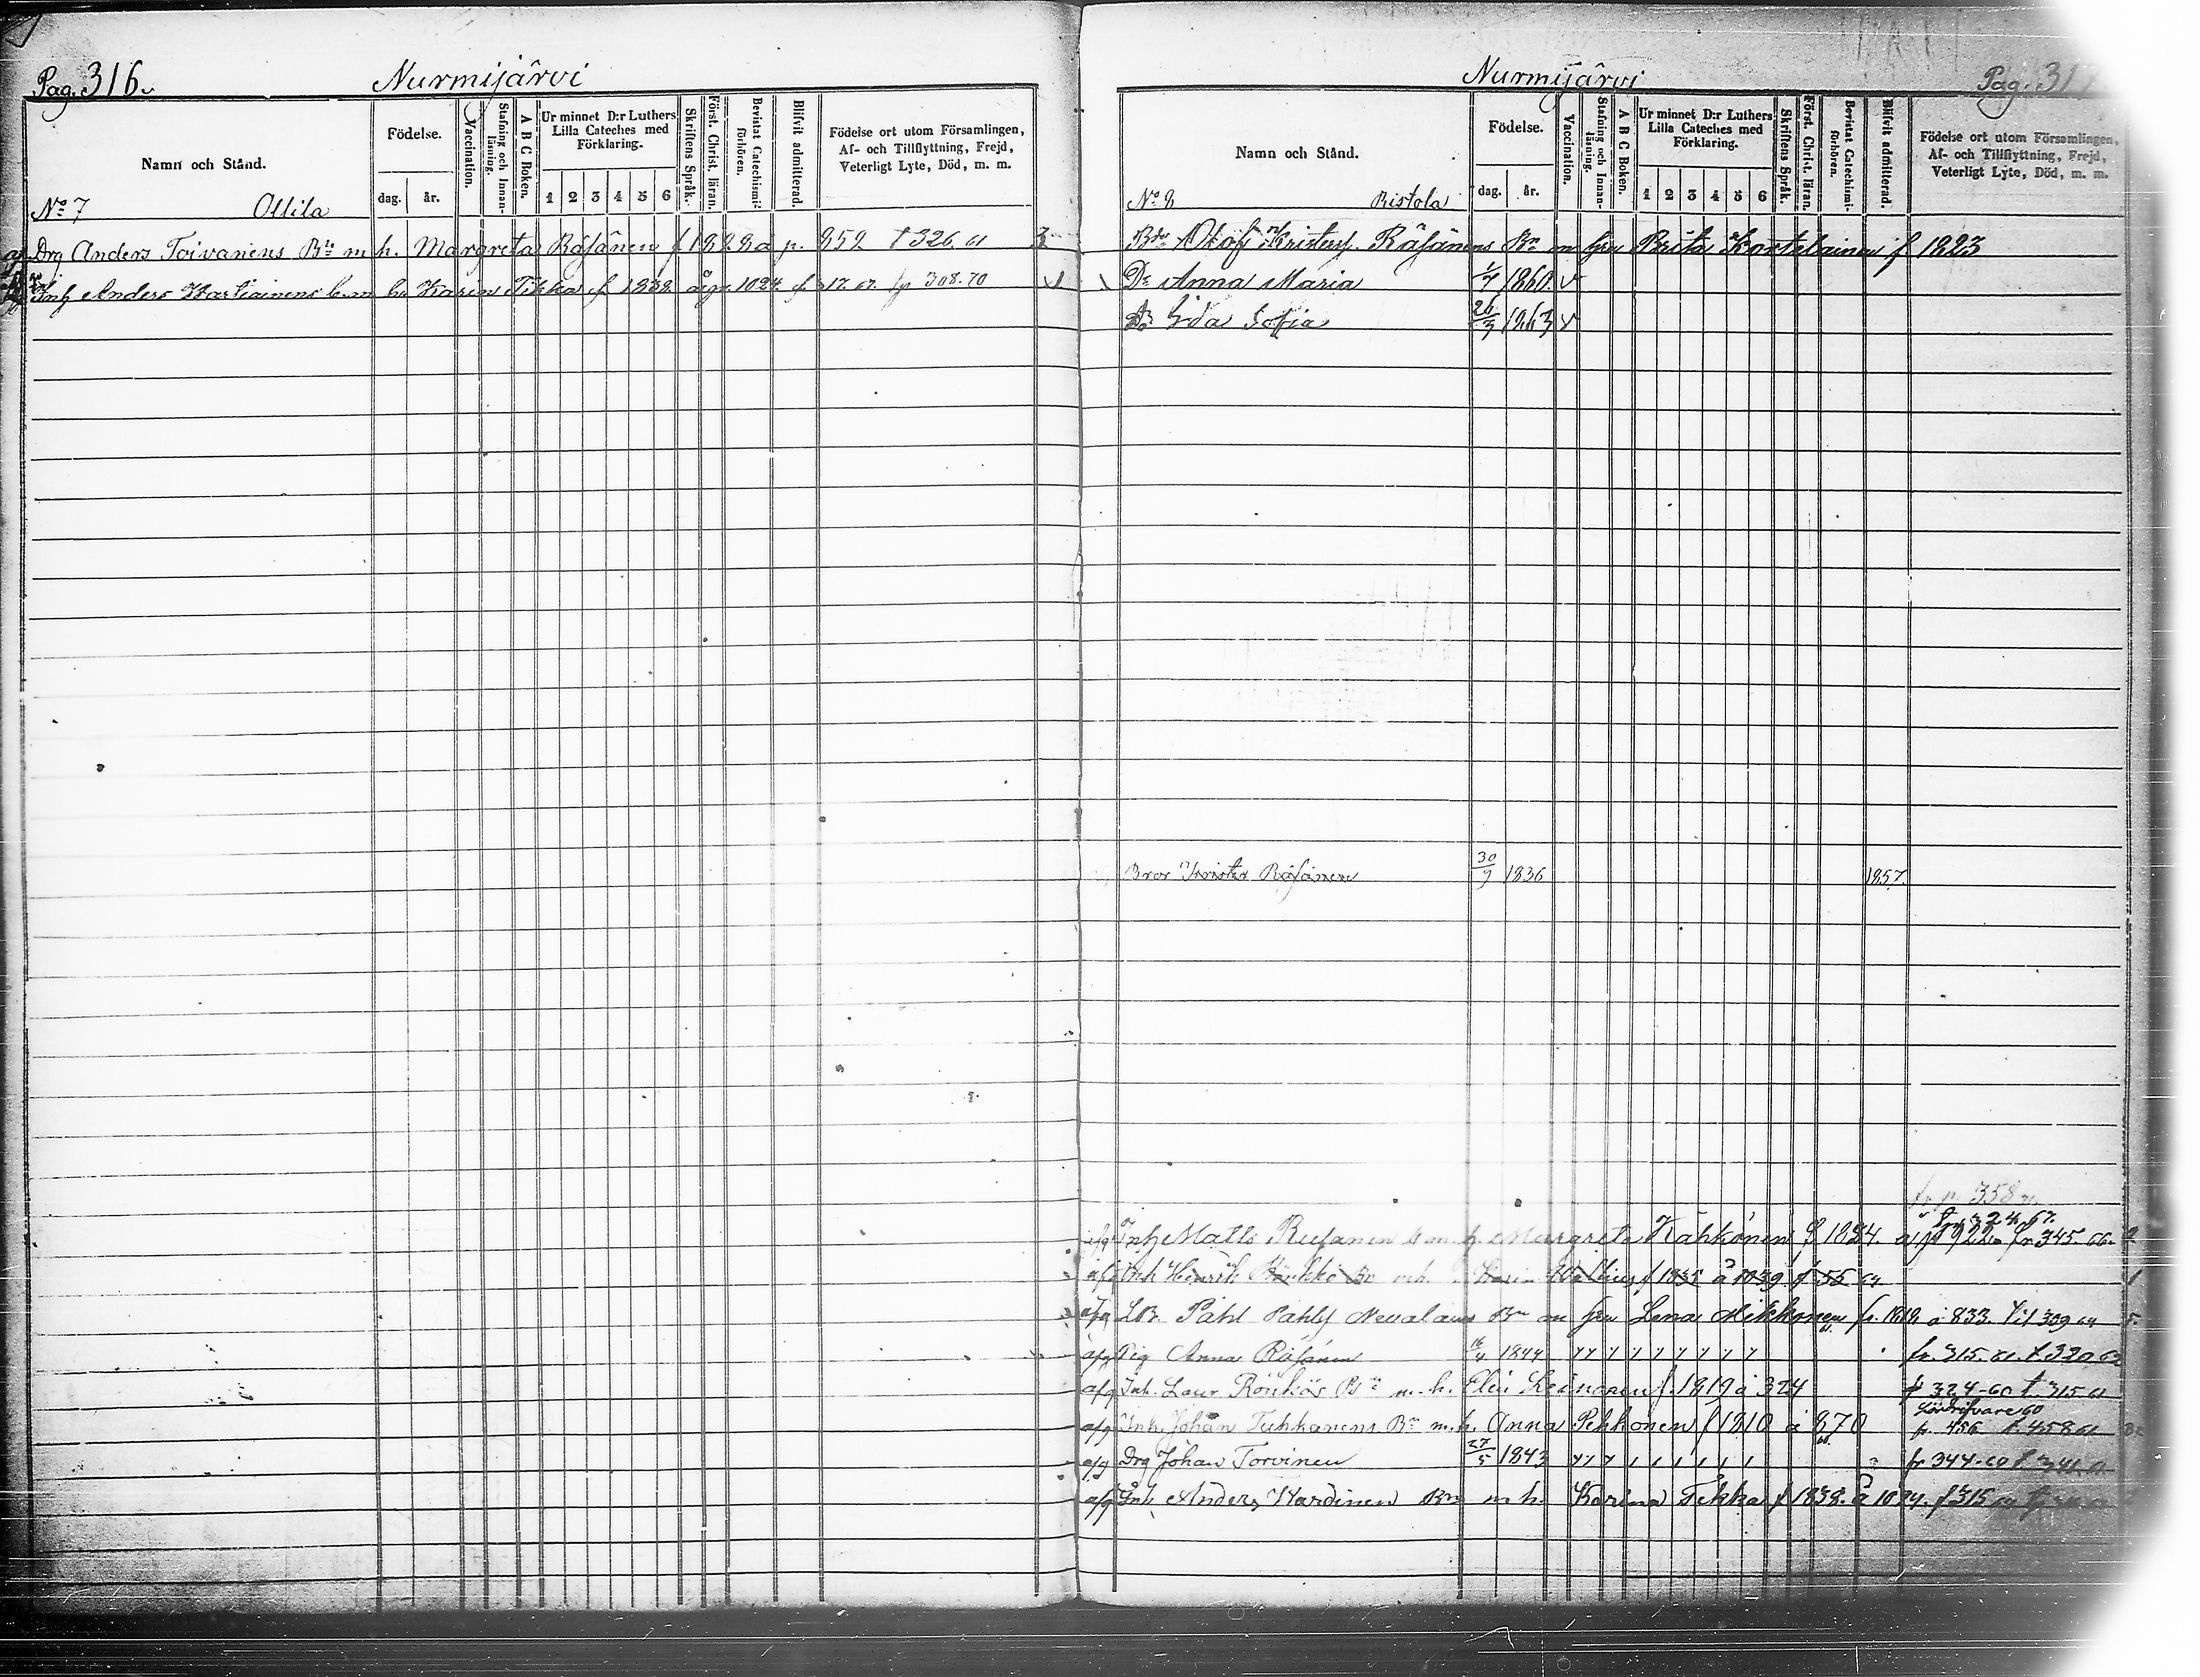 Pag. 316.
Nurmijärvi
Namn och Stånd.
Födelse.
dag.
år.
Vaccination.
Stafning och Innanläsning.
A B C Boken.
Ur minnet D:r Luthers Lilla Cateches med Förklaring.
1 2 3 4 5 6
Skriftens Språk.
Först. Christ. läran.
Bevistat Catechismiförhören.
Blifvit admitterad.
Födelse ort utom Församlingen,
Af- och Tillflyttning, Frejd,
Veterligt Lyte, Död, m. m.
No 7 Ollila
Drg Anders Toivanens Bn m h. Margreta Räsänen f 1828 å p. 859 t 326. 61 3
Inh Anders Kartiainens b. m h. Karin Tikka f 1838 å p 1024 308.70
Nurmijärvi
Pag. 317
Namn och Stånd.
Födelse.
dag.
år.
Vaccination.
Stafning och Innanläsning.
A B C Boken.
Ur minnet D:r Luthers Lilla Cateches med Förklaring.
1 2 3 4 5 6
Skriftens Språk.
Först. Christ. läran.
Bevistat Catechismiförhören.
Blifvit admitterad.
Födelse ort utom Församlingen,
Af- och Tillflyttning, Frejd,
Veterligt Lyte, Död, m. m.
No 8 Ristola
Olof Räsänens Bn m hu Brita Kortelainen f 1823
Dr Anna Maria 1860 v
Ida Sofia 26/3 1863 v
Bror Krister Räsänen 30/9 1836 1857.
fr p. 358
Inh Matts m. h. Margreta Kähkönen f 1824. 922 fr 345. 66.
Inh Henrik m h. Karin f 1835 å 1039 f 55 64
afg LB. Påhl Påhls Nevalains Bn m hu Lena Mikkonen f. 1819 å 833. Til 309 64 5.
afg Pig Anna Räsänen 16/4 1844 fr. 315. 61. t. 320 62
afg Inh. Laur Rönkös Bn m. h. Elin Leinonen f. 1819 å 324 fr 324-60 t. 315 61
afg Inh. Johan Tuhkanens Bn m. h. Anna Pekkonen f 1810 å 870 fr. 456 t. 458 61
afg Drg Johan Torvinen 27/5 1843 fr 344-60 t. 341
afg Inh. Anders Kardinen Bn m h. Karina Tikka f 1838. å 1024. f 315